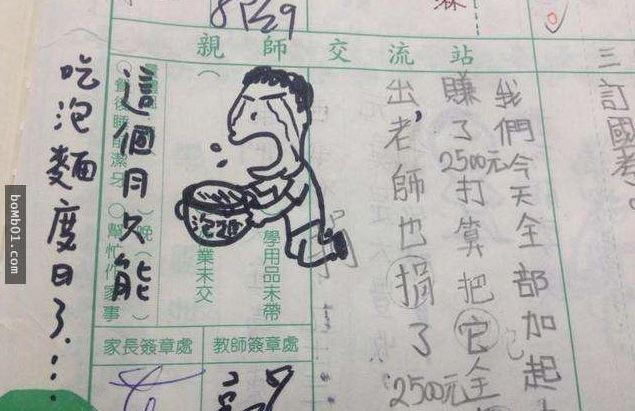 三訂國考
我們今天全部加起
賺了2500元打算把它全
出,老師也捐了2500元
親師交流站
這個月只能
吃泡麵度日了...
泡麵
學用品未帶
業未交
餐後睡前潔牙
幫忙作家事
家長簽章處
教師簽章處
bomb01.com